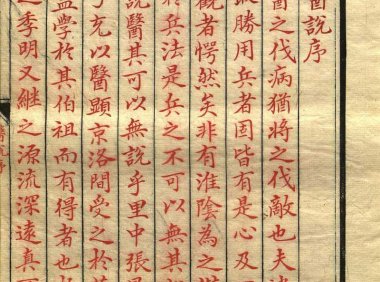 醫說序
醫之伐病猶將之伐敵也夫
勝用兵者固皆有是心及
觀者愕然矣非有淮陰為之
於兵法是兵之不可以無其
說醫其可以無說乎里中張
充以醫顯京洛間受之於
學於其伯祖而有得者也
之季明又繼之源流深遠真